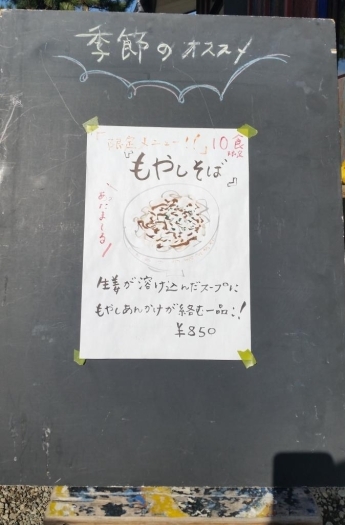 季節のオススメ
限定メニュー!! 10食
限定
もやしそば
あたたまる
生姜が溶け込んだスープに
もやしあんかけが絡む一品!!
¥850